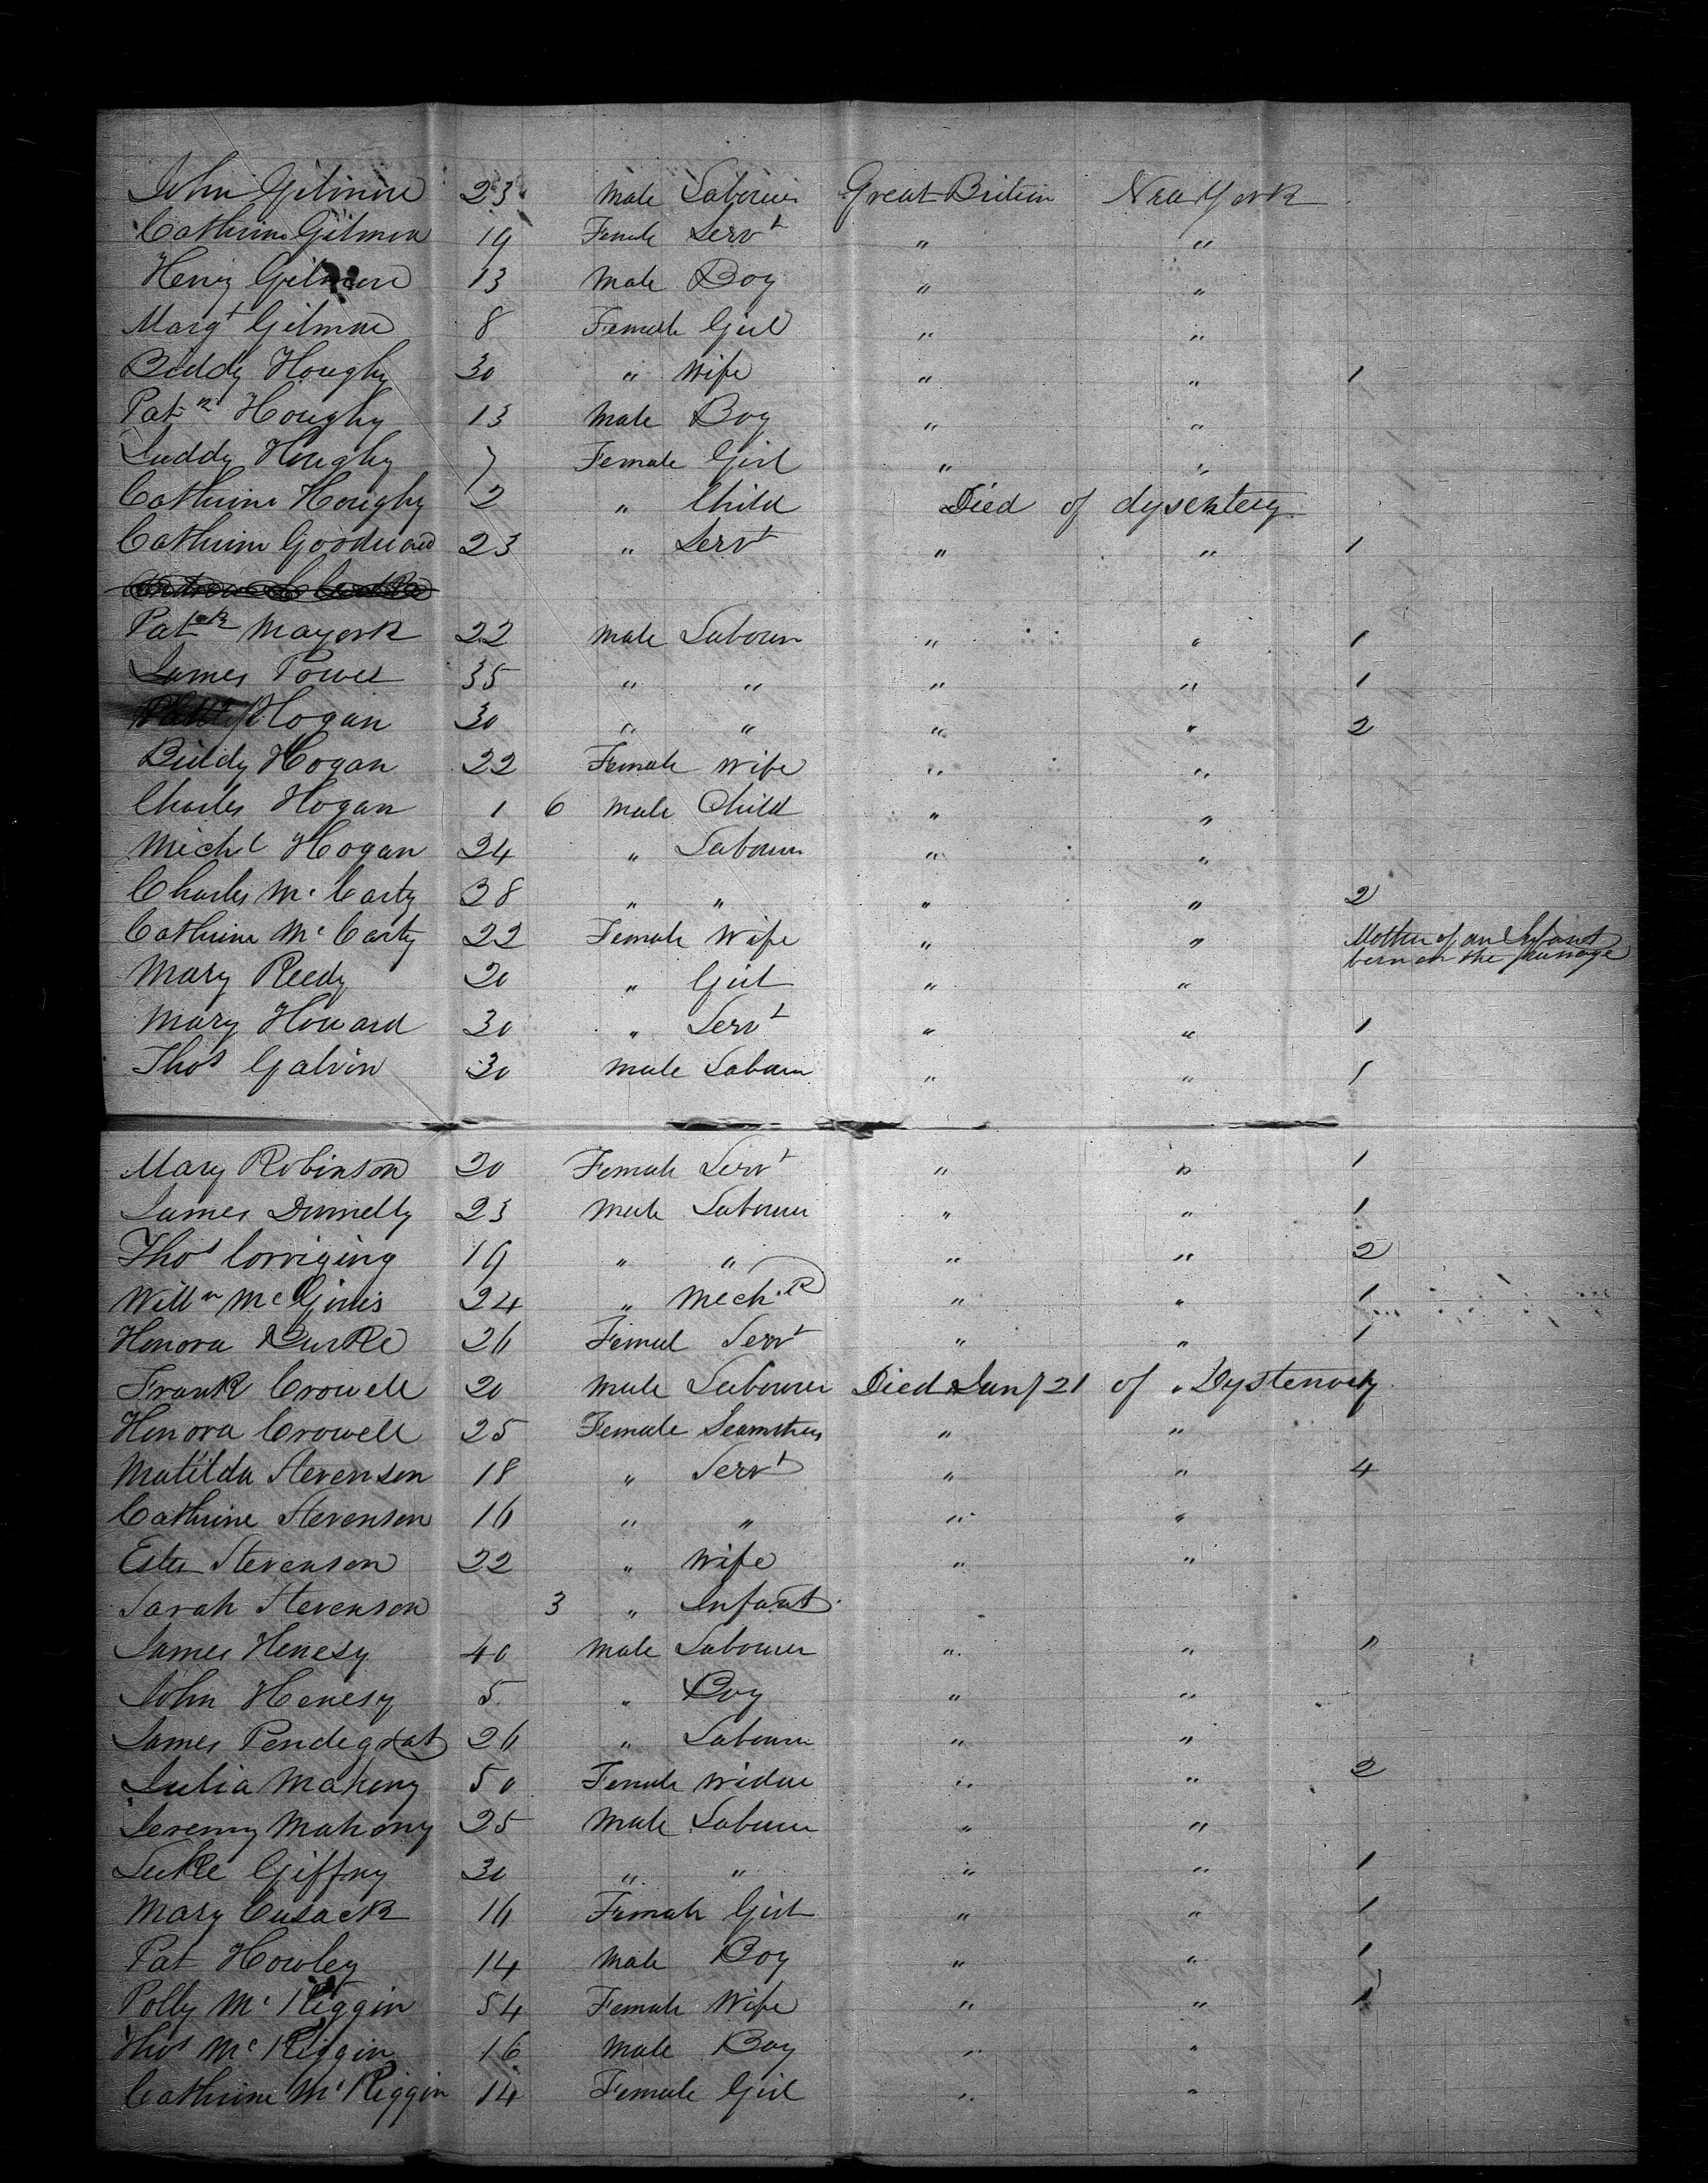 John Gilmore 23 Male Labourer Great Britain New York
Cathrine Gilmore 19 Female Servt " "
Henry Gilmore 13 Male Boy " "
Margt Gilmore 8 Female Girl " "
Biddy Houghy 30 " Wife " " 1
Patrk Houghy 13 Male Boy " "
Houghy 7 Female Girl " "
Cathrine Houghy 2 " Child Died of dysentery
Cathrine 23 " Servt " " 1
Patrk 22 Male Labourer " " 1
James Power 35 " " " " 1
Hogan 30 " " " " 2
Biddy Hogan 22 Female Wife " "
Charles Hogan 1 6 Male Child " "
Michl Hogan 24 " Labourer " "
Charles Mc Carty 38 " " " " 2
Cathrine Mc Carty 22 Female Wife " " Mother of an Infant
born on the passage
Mary Reedy 20 " Girl " "
Mary Howard 30 " Servt " " 1
Thos Galvin 30 Male Labourer " " 1
Mary Robinson 20 Female Servt " " 1
James Dunnelly 23 Male Labourer " " 1
Thos 19 " " " " 2
Willm Mc Ginis 24 " Mech. " " 1
Honora Burke 26 Female Servt " " 1
Frank Crowell 20 Male Labourer Died 21 of "
Honora Crowell 25 Female Seamstress " "
Matilda Stevenson 18 " Servt " " 4
Cathrine Stevenson 16 " " " "
Ester Stevenson 22 " Wife " "
Sarah Stevenson 3 " Infant
James Henesy 40 Male Labourer " " "
John Henesy 5 " Boy " "
James Pendegrat 26 " Labourer " "
Julia Mahony 50 Female Widow " " 2
Jeremy Mahony 25 Male Labourer " "
Luke Giffny 30 " " " " 1
Mary Cusack 16 Female Girl " " 1
Pat Howley 14 Male Boy " " 1
Polly Mc Kiggin 54 Female Wife " "
Thos Mc Kiggin 16 Male Boy " "
Cathrine Mc Kiggin 14 Female Girl " "